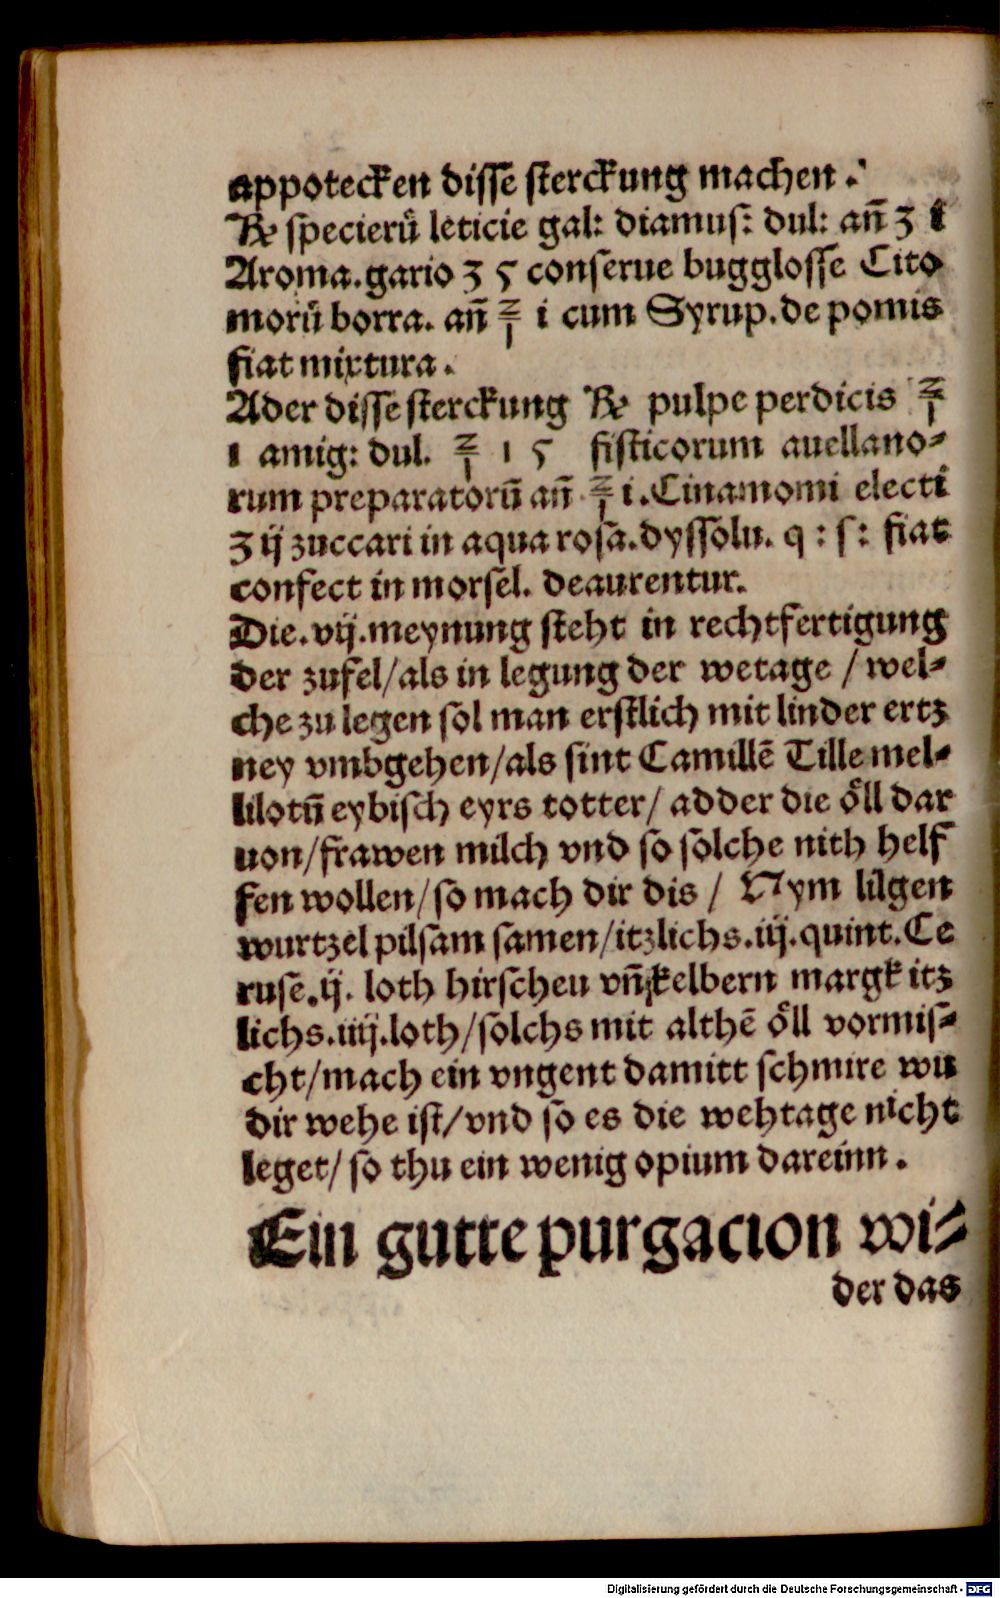 appotecken disse sterckung machen .
℞ specierū leticie gal: diamus: dul: an̄ ʒ i
Aroma.gario ʒ ς conserue bugglosse Cito
morū borra. an̄ ℥ i cum Syrup.de pomis
fiat mixtura .
Ader disse sterckung ℞ pulpe perdicis ℥
1 amig: dul. ℥ 1 ς fisticorum auellano⸗
rum preparatorū an̄ ℥ i.Cinamomi electi
ʒ ij zuccari in aqua rosa.dyssolu. q : s : fiat
confect in morsel. deaurentur.
Die.vij.meynung steht in rechtfertigung
der zufel/als in legung der wetage / wel⸗
che zu legen sol man erstlich mit linder ertz
ney vmbgehen/als sint Camillē Tille mel⸗
lilotū eybisch eyrs totter/ adder die öll dar
uon/frawen milch vnd so solche nith helf
fen wollen/so mach dir dis / Nym lilgen
wurtzel pilsam samen/itzlichs.iij.quint.Ce
ruse.ij. loth hirschen vn̄ kelbern margk itz
lichs.iiij.loth/solchs mit althē öll vormis⸗
cht/mach ein vngent damitt schmire wu
dir wehe ist/vnd so es die wehtage nicht
leget/ so thu ein wenig opium dareinn .
Ein gutte purgacion wi⸗
der das
Digitalisierung gefördert durch die Deutsche Forschungsgemeinschaft - DFG